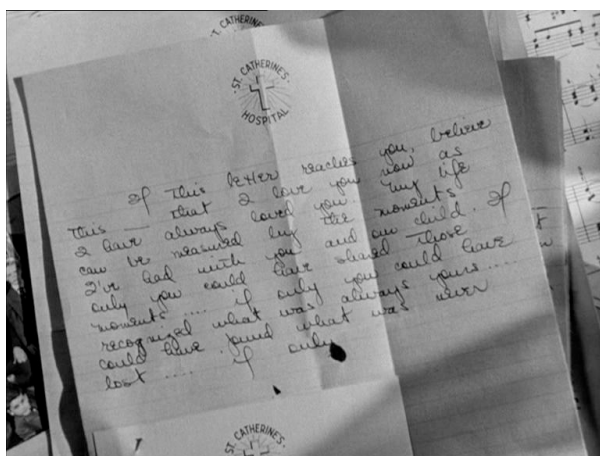 ST. CATHERINE'S
ST. CATHERINE'S
HOSPITAL
If this letter reaches you, believe
this — that I love you now as
I have always loved you. My life
can be measured by the moments
I've had with you and our child. If
only you could have shared those
moments .... if only you could have
recognized what was always yours....
could have found what was never
lost .... if only
ST. CATHERINE'S